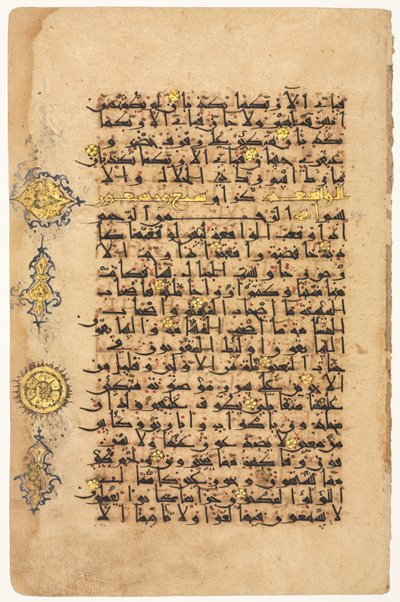 فبأي الاء ربكما تكذبان لم يطمثهن
انس قبلهم ولا جان فبأي الاء ربكما
تكذبان متكئين على رفرف خضر و
عبقري حسان فبأي الاء ربكما تكذبان
تبارك اسم ربك ذي الجلال والاكرام
الواقعة وتسعون
بسم الله الرحمن الرحيم
اذا وقعت الواقعة ليس لوقعتها كا
ذبة خافضة رافعة اذا رجت الا
رض رجا وبست الجبال بسا فكانت
هباء منبثا وكنتم ازواجا ثلثة فاصحاب
الميمنة ما اصحاب الميمنة واصحاب
المشئمة ما اصحاب المشئمة والسابقون
السابقون اولئك المقربون في
جنات النعيم ثلة من الاولين وقليل من
الاخرين على سرر موضونة متكئين
عليها متقابلين يطوف عليهم ولدان
مخلدون باكواب واباريق وكاس
من معين لا يصدعون عنها ولا ينز
فون وفاكهة مما يتخيرون ولحم طير
مما يشتهون وحور عين كامثال
اللؤلؤ المكنون جزاء بما كانوا يعملون
لا يسمعون فيها لغوا ولا تاثيما الا